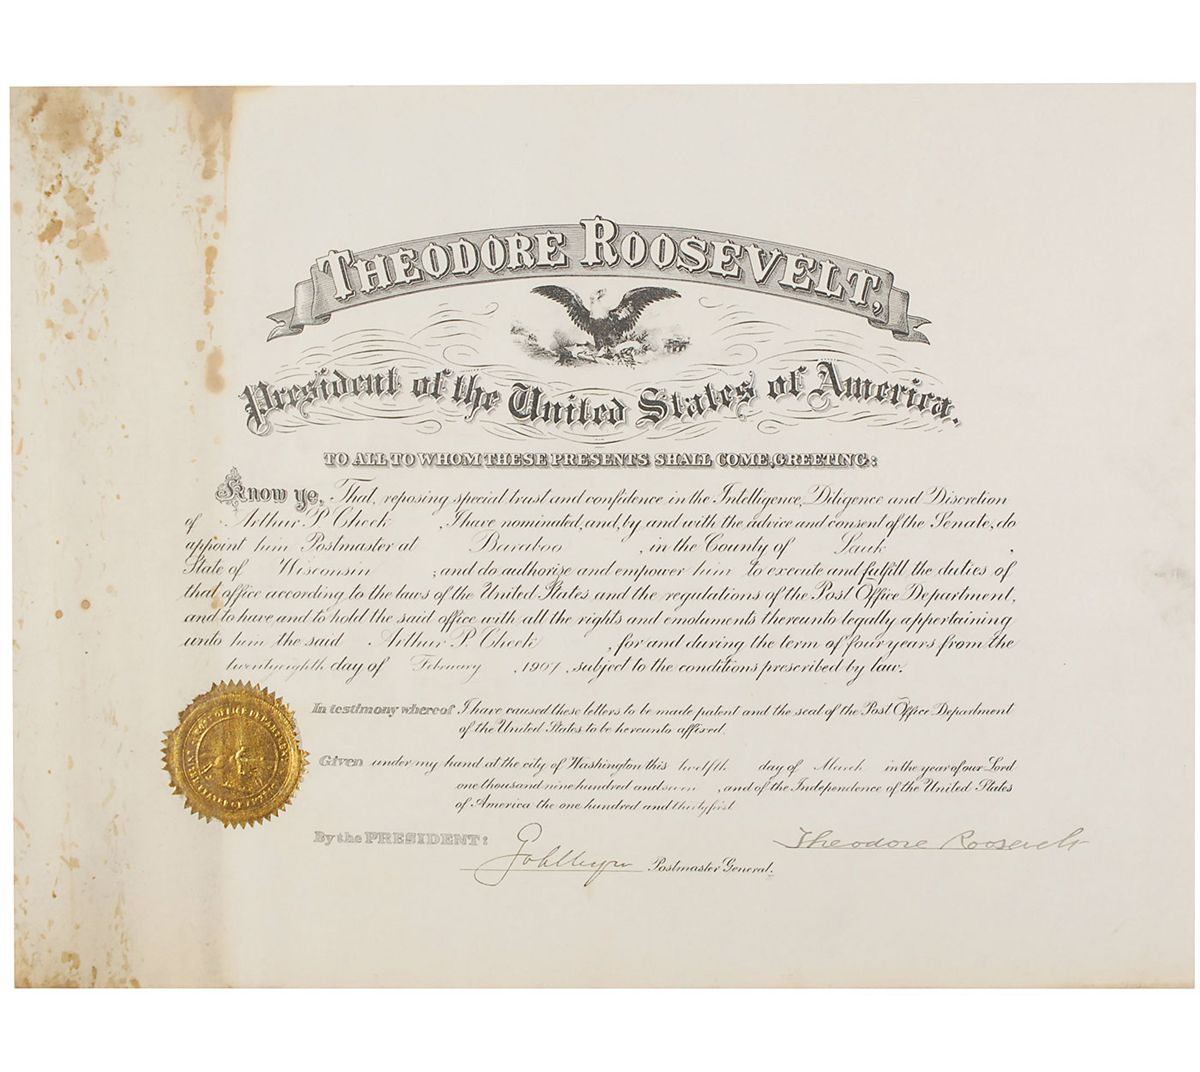 THEODORE ROOSEVELT,
President of the United States of America.
TO ALL TO WHOM THESE PRESENTS SHALL COME, GREETING:
Know ye, That, reposing special trust and confidence in the Intelligence, Diligence and Discretion
of Arthur P. Cheek , I have nominated, and, by and with the advice and consent of the Senate, do
appoint him Postmaster at Baraboo , in the County of Sauk ,
State of Wisconsin ; and do authorize and empower him to execute and fulfill the duties of
that office according to the laws of the United States and the regulations of the Post Office Department,
and to have and to hold the said office with all the rights and emoluments thereunto legally appertaining
unto him the said Arthur P. Cheek , for and during the term of four years from the
twentyeighth day of February , 1907 , subject to the conditions prescribed by law.
In testimony whereof I have caused these letters to be made patent and the seal of the Post Office Department
of the United States to be hereunto affixed.
Given under my hand at the city of Washington this twelfth day of March in the year of our Lord
one thousand nine hundred and seven , and of the Independence of the United States
of America the one hundred and thirtyfirst
By the PRESIDENT: Theodore Roosevelt
Postmaster General.
POST OFFICE DEPARTMENT
UNITED STATES OF AMERICA